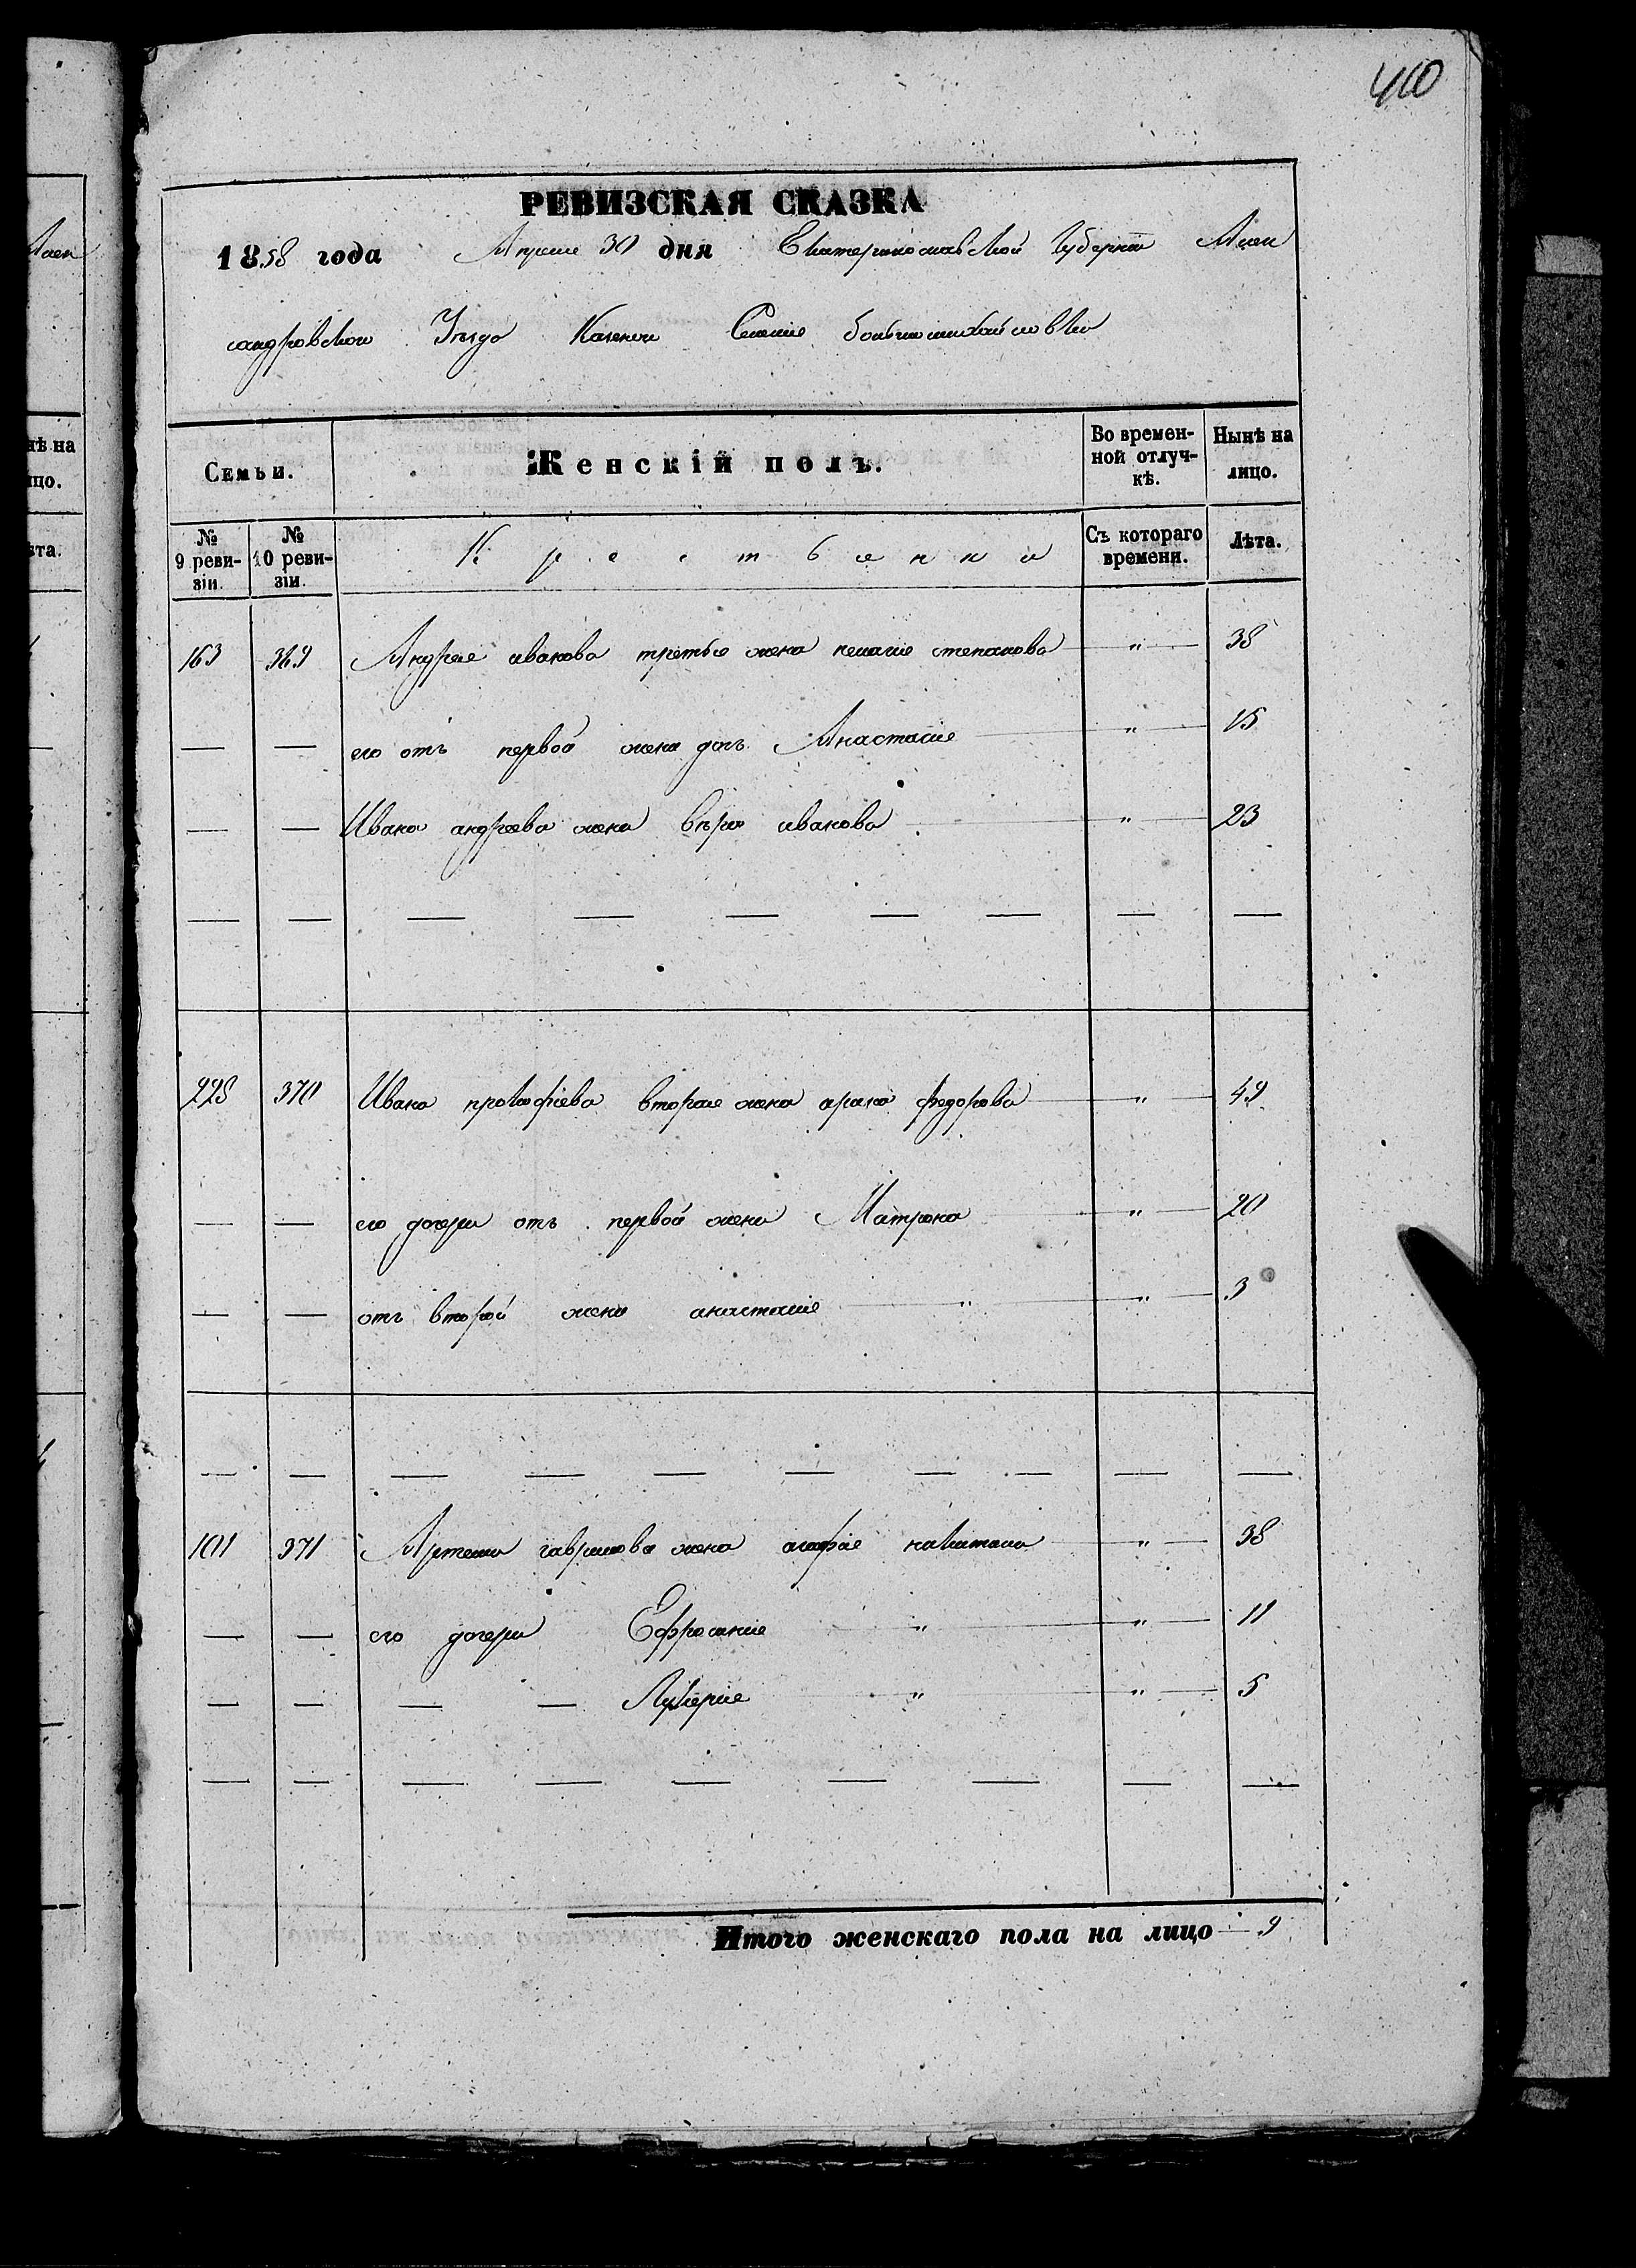 400
РЕВИЗСКАЯ СКАЗКА
1858 года Апреля 30 дня Екатеринославской Губернии Алек
сандровского Уезда Казенного Селения большомихайловки
Семьи. Женскій полъ. Во времен-ной отлуч-кѣ. Нынѣ на лицо.
№ 9 реви-зіи. № 10 реви-зіи. Крестьянки Съ котораго времени. Лѣта.
163 369 Андрея иванова третья жена пелагия степанова " 38
— — его отъ первой жены дочь Анастасия " 15
— — Ивана андреева жена вѣра иванова " 23
— — — — — — — — —
228 370 Ивана прокофіева вторая жена арина федорова " 49
— — его дочери отъ первой жены Матрона " 20
— — отъ второй жены анастасия " " 3
— — — — — — — — — —
101 371 Артема гаврилова жена агафия никитина " 38
— — его дочери Ефросиния " " 11
— — — — Лукерия " " 5
— — — — — — — — —
Итого женскаго пола на лицо — 9
Алек
нѣ на
цо.
ѣта.